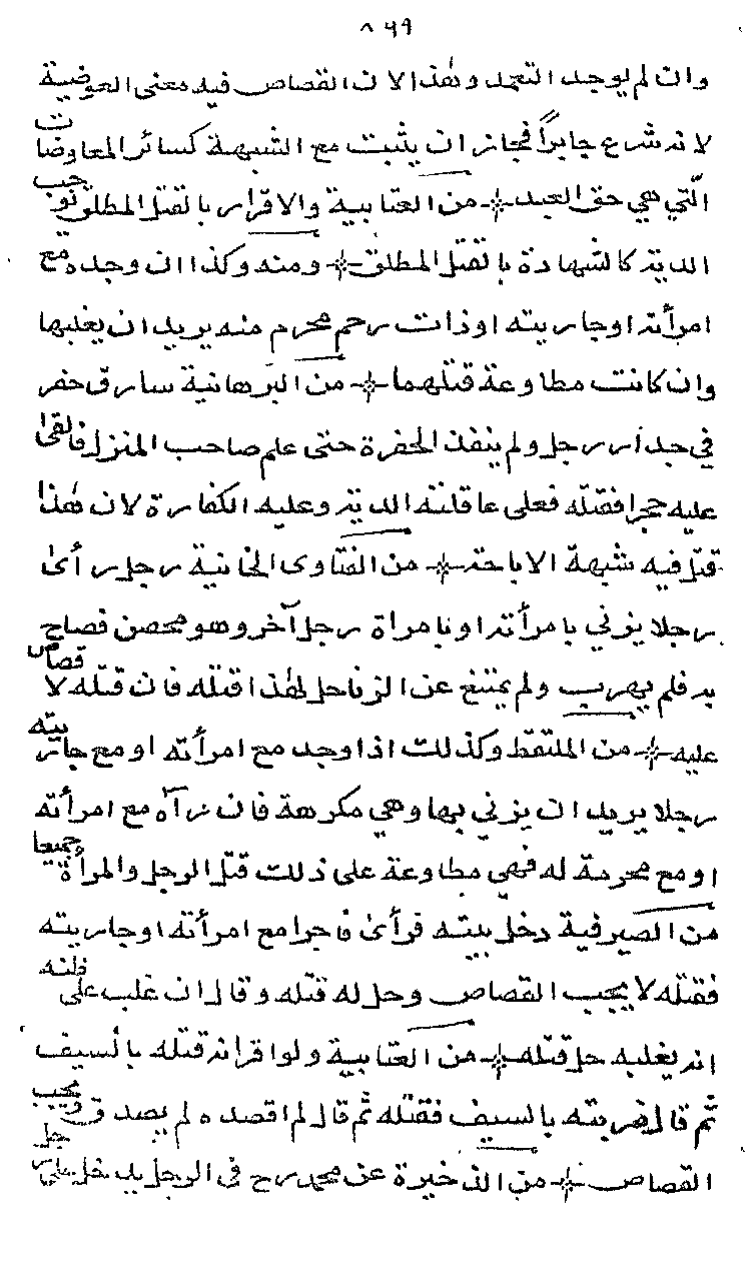 ٨٦٩
وان لم يوجد التعمد وهذا لان القصاص فيه معنى العوضية
لانه شرع جابراً فجاز ان يثبت مع الشبهة كسائر المعاوضات
التي هي حق العبد من العتابية والاقرار بالقتل المطلق توجب
الدية كالشهادة بالقتل المطلق ومنه وكذا ان وجده مع
امرأته او جاريته او ذات رحم محرم منه يريد ان يغلبها
وان كانت مطاوعة قتلهما من البرهانية سارق حفر
في جدار رجل ولم ينفذ الحفرة حتى علم صاحب المنزل فالقى
عليه حجرا فقتله فعلى عاقلته الدية وعليه الكفارة لان هذا
قتل فيه شبهة الاباحة من الفتاوى الخانية رجل رأى
رجلا يزني بامرأته او بامرأة رجل آخر وهو محصن فصاح
به فلم يهرب ولم يمتنع عن الزنا حل لهذا قتله فان قتله لا قصاص
عليه من الملتقط وكذلك اذا وجد مع امرأته او مع جاريته
رجلا يريد ان يزني بها وهي مكرهة فان رآه مع امرأته
او مع محرمة له فهي مطاوعة على ذلك قتل الرجل والمرأة جميعا
من الصيرفية دخل بيته فرأى فاجرا مع امرأته او جاريته
فقتله لا يجب القصاص وحل له قتله وقال ان غلب على ظنه
انه يغلبه حل قتله من العتابية ولو اقر انه قتله بالسيف
ثم قال ضربته بالسيف فقتله ثم قال لم اقصده لم يصدق ويجب
القصاص من الذخيرة عن محمد رح في الرجل يدخل على رجل